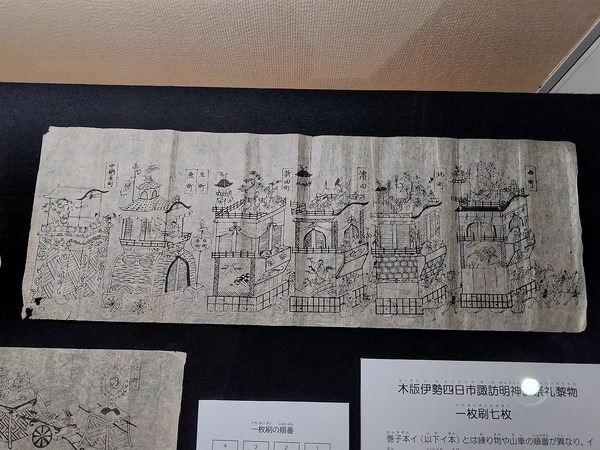 西町
北町
濱田
新田町
魚町
中納屋町
一枚刷の順番
4 3 2 1
木版伊勢四日市諏訪明神 祭礼黎物
一枚刷七枚
巻子本イ(以下イ本)とは練り物や山車の順番が異なり、イ